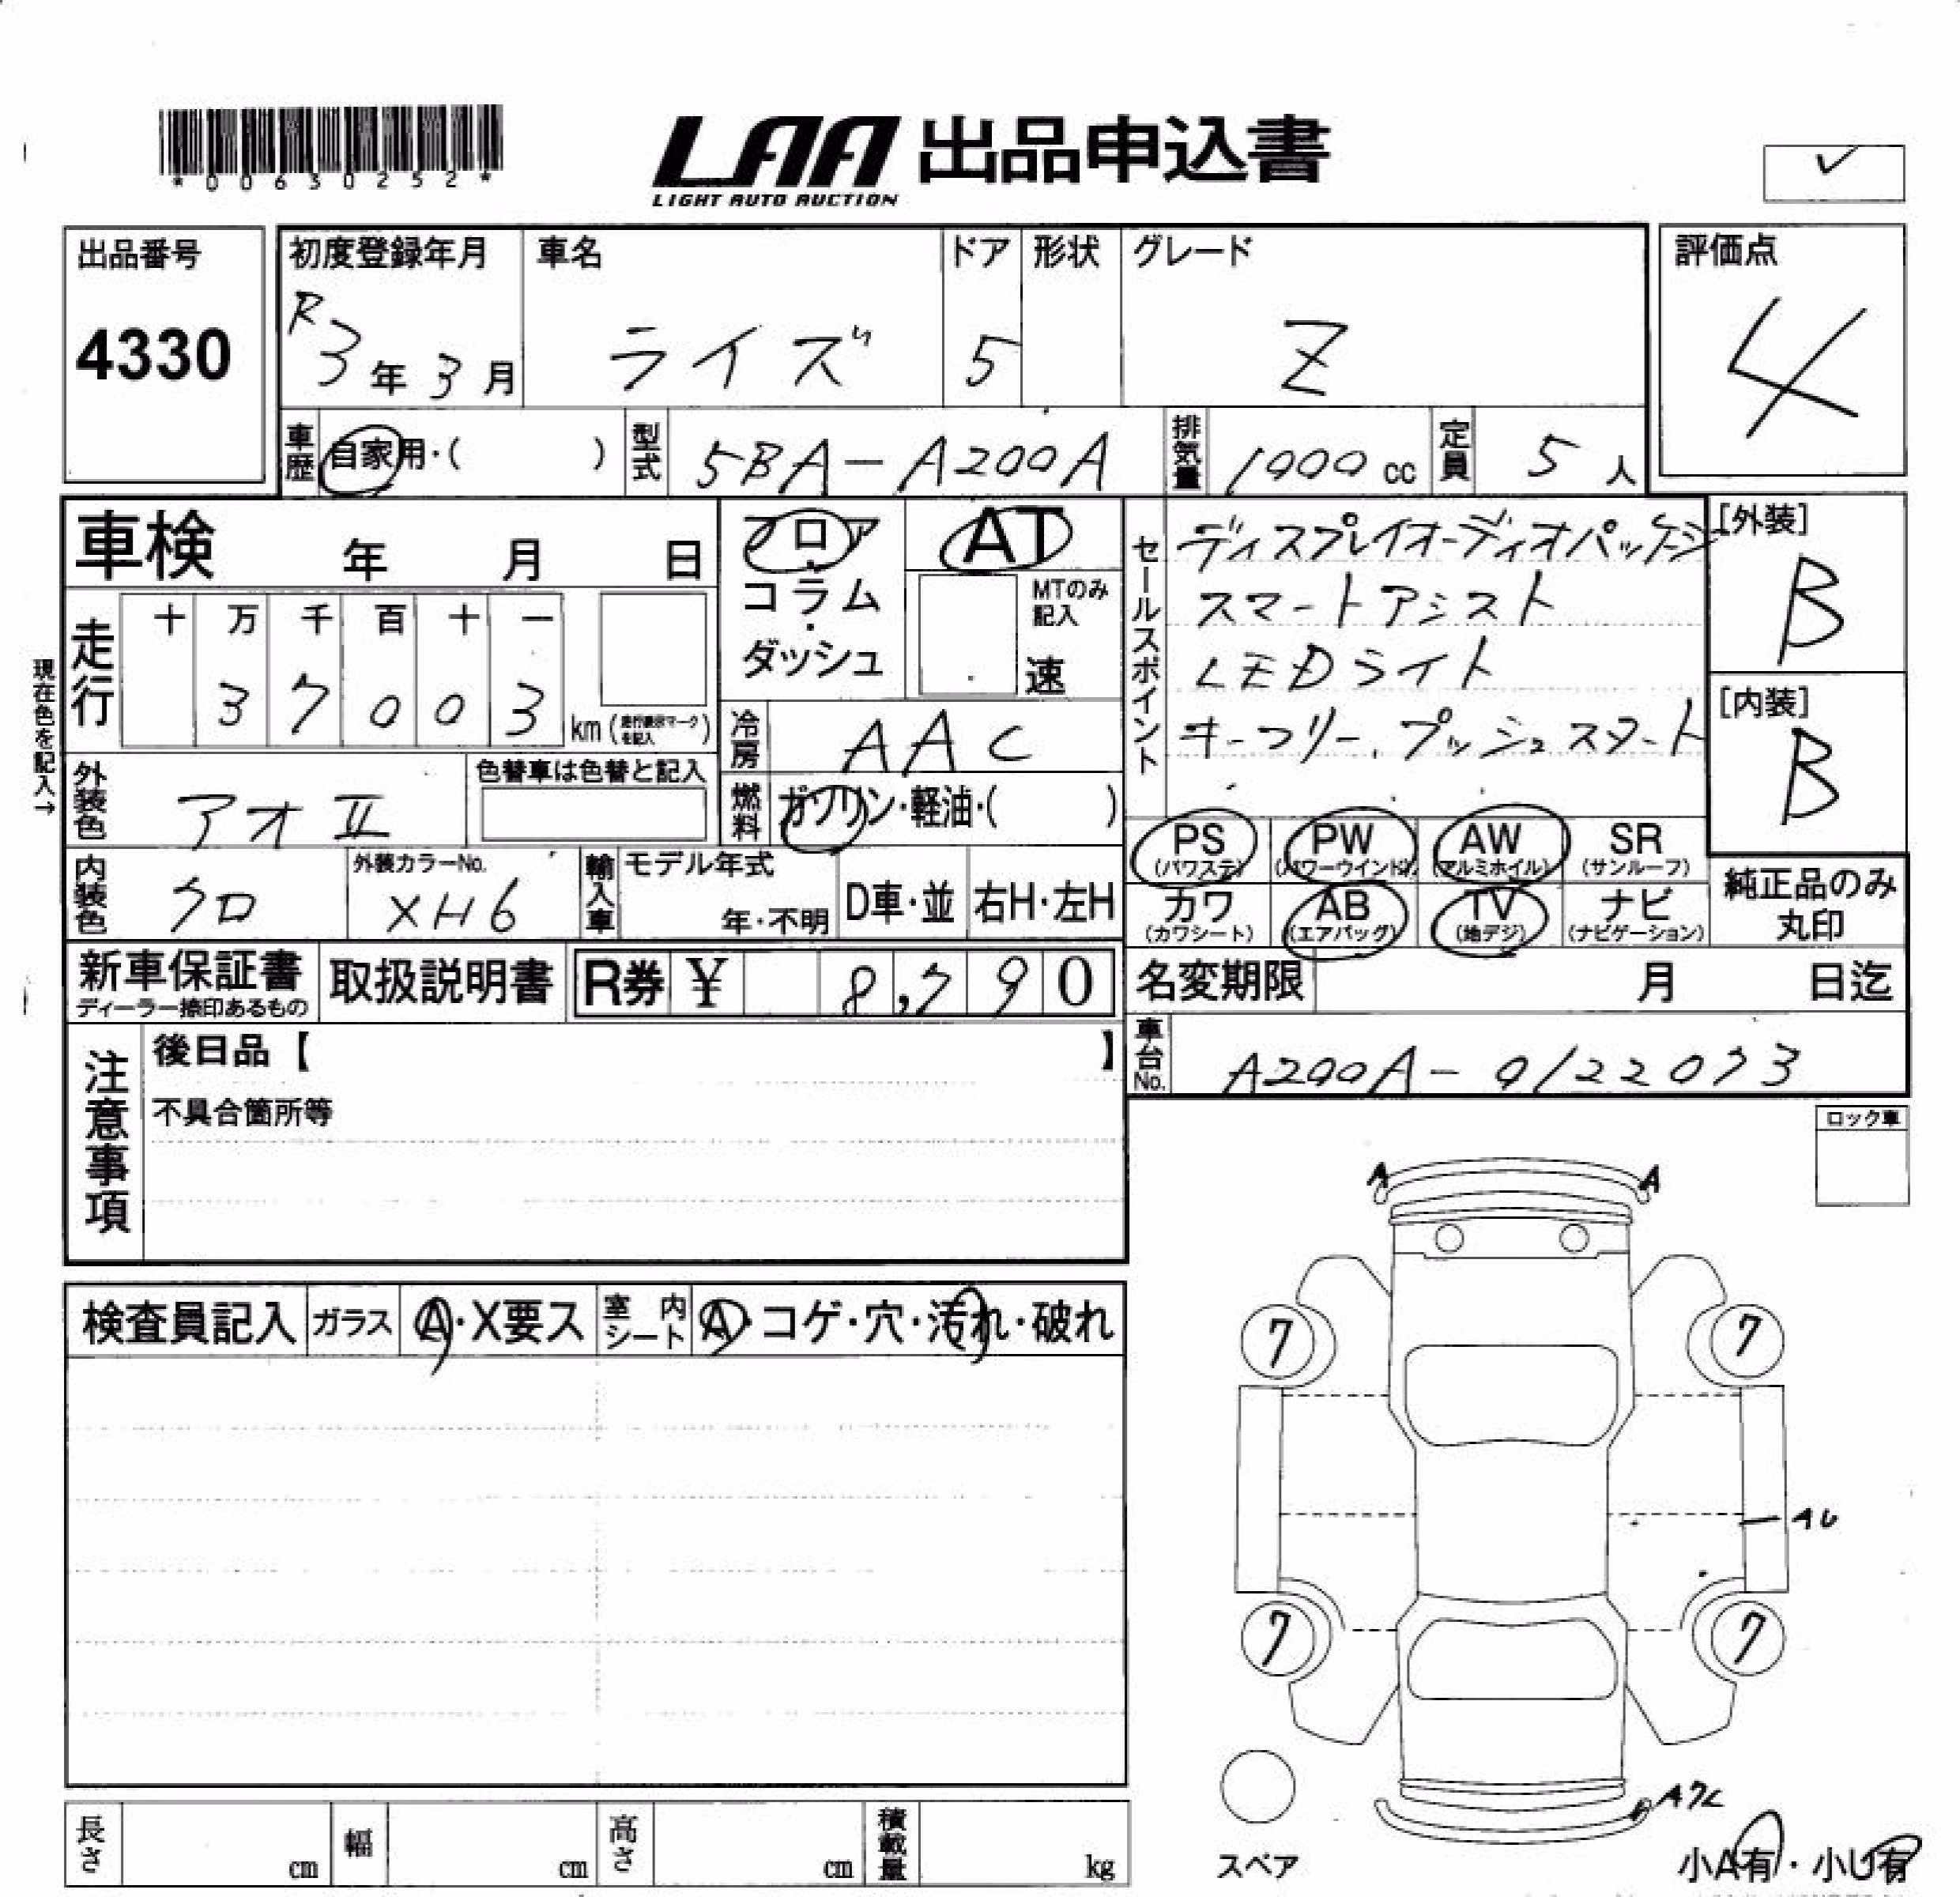 *00630252*
LAA 出品申込書
LIGHT AUTO AUCTION
✓
出品番号
4330
初度登録年月
R3年3月
車名
ライズ
ドア
5
形状
グレード
Z
評価点
4
車歴 自家用・( )
型式 5BA-A200A
排気量 1000cc
定員 5人
車検 年 月 日
フロア・コラム・ダッシュ
AT
MTのみ記入
速
セールスポイント
ディスプレイオーディオパッケージ
スマートアシスト
LEDライト
キーフリー、プッシュスタート
[外装]
B
[内装]
B
現在色を記入→
走行
十 万 千 百 十 一
3 7 0 0 3 km (走行表示マークを記入)
冷房 AAC
外装色 アオⅡ
色替車は色替と記入
燃料 ガソリン・軽油・( )
PS (パワステ)
PW (パワーウインド)
AW (アルミホイル)
SR (サンルーフ)
内装色 クロ
外装カラーNo.
XH6
輸入車
モデル年式
年・不明
D車・並
右H・左H
カワ (カワシート)
AB (エアバッグ)
TV (地デジ)
ナビ (ナビゲーション)
純正品のみ丸印
新車保証書
ディーラー捺印あるもの
取扱説明書
R券 ¥ 8,790
名変期限 月 日迄
注意事項
後日品【 】
不具合箇所等
車台No. A200A-0122073
ロック車
A A
検査員記入 ガラス A・X要ス 室内シート A・コゲ・穴・汚れ・破れ
7 7
AU
7 7
スペア
小A有・小U有
長さ cm
幅 cm
高さ cm
積載量 kg